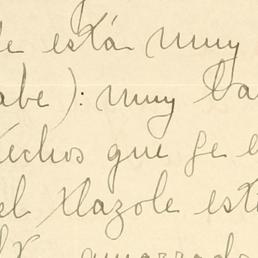 está muy
abe): muy ba
echos que se e
el tlazole est
amarrado